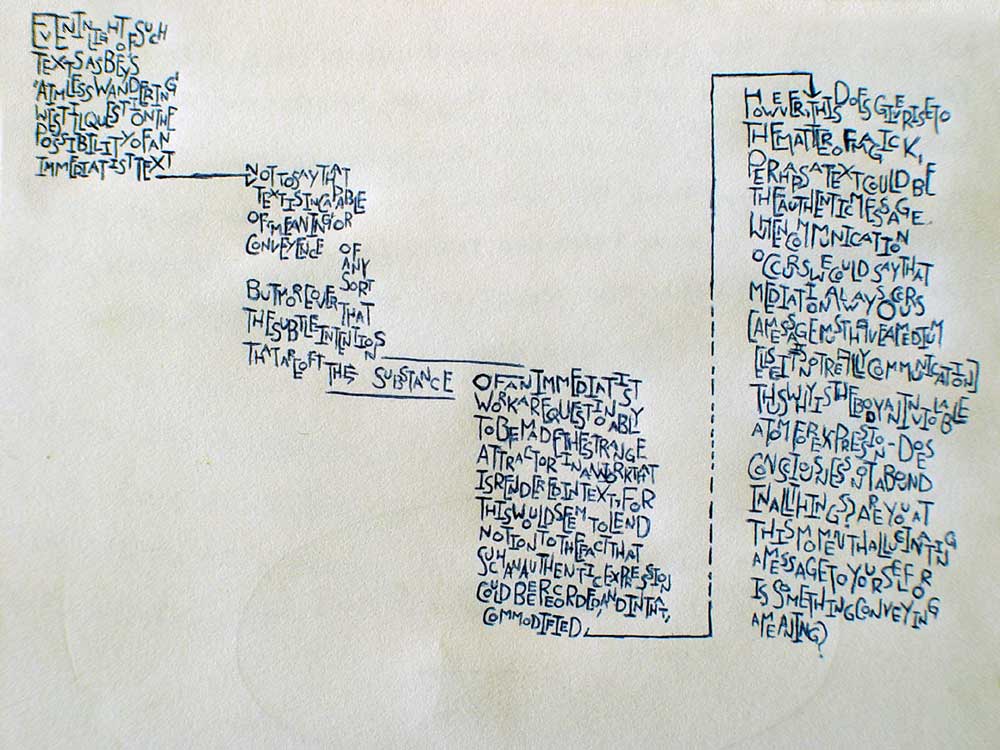 EVEN IN LIGHT OF SUCH
TEXTS AS BEY'S
'AIMLESS WANDERING'
WE STILL QUESTION THE
POSSIBILITY OF AN
IMMEDIATIST TEXT
NOT TO SAY THAT
TEXT IS INCAPABLE
OF 'MEANING' OR
CONVEYENCE OF
ANY
SORT
BUT MOREOVER THAT
THE SUBTLE INTENTIONS
THAT ARE OFT THE SUBSTANCE
OF AN IMMEDIATIST
WORK ARE QUESTIONABLY
TO BE MADE THE STRANGE
ATTRACTOR IN A WORK THAT
IS RENDERED IN TEXT, FOR
THIS WOULD SEEM TO LEND
NOTION TO THE FACT THAT
SUCH AN AUTHENTIC EXPRESSION
COULD BE RECORDED, AND IN THAT,
COMMODIFIED.
HOWEVER, THIS DOES GIVE RISE TO
THE MATTER OF MAGICK,
PERHAPS A TEXT COULD BE
THE AUTHENTIC MESSAGE.
WHEN COMMUNICATION
OCCURS WE COULD SAY THAT
MEDIATION ALWAYS OCCURS
[A MESSAGE MUST HAVE A MEDIUM
ELSE IT IS NOT REALLY COMMUNICATION]
THUS WHY IS THE BODY AN INVIOLABLE
ATOM FOR EXPRESSION - DOES
CONSCIOUSNESS NOT ABOUND
IN ALL THINGS? ARE YOU AT
THIS MOMENT HALLUCINATING
A MESSAGE TO YOURSELF OR
IS SOMETHING CONVEYING
A MEANING?